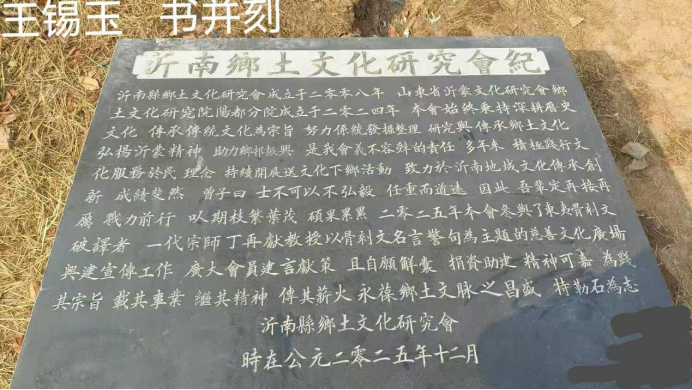 王锡玉 书并刻
沂南鄉土文化研究會紀
沂南縣鄉土文化研究會成立于二零零八年 山東省沂蒙文化研究會鄉
土文化研究院陽都分院成立于二零二四年 本會始終秉持深耕歷史
文化 傳承傳統文化為宗旨 努力係統發掘整理 研究與傳承鄉土文化
弘揚沂蒙精神 助力鄉邨振興 是我會義不容辭的責任 多年来 積極践行文
化服務於民 理念 持續開展送文化下鄉活動 致力於沂南地域文化傳承創
新 成績斐然 曾子曰 士不可以不弘毅 任重而道遠 因此 吾輩定再接再
厲 戮力前行 以期枝繁葉茂 碩果累累 二零二五年本會参與了東夷骨刻文
破譯者 一代宗師丁再獻教授以骨刻文名言警句為主題的慈善文化廣場
興建宣傳工作 廣大會員建言獻策 且自願解囊 捐資助建 精神可嘉 為踐
其宗旨 載其事業 繼其精神 傳其薪火 永葆鄉土文脉之昌盛 特勒石為志
沂南縣鄉土文化研究會
時在公元二零二五年十二月